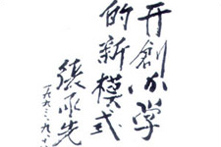 开創办学
的新模式
張承先
一九九三.九.十